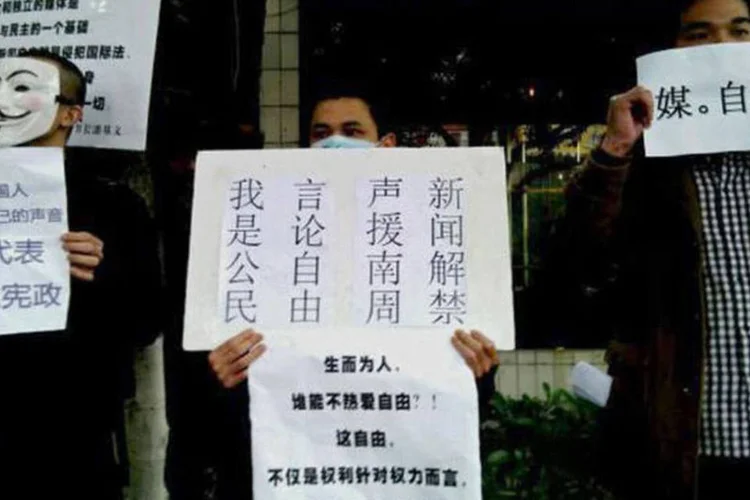 和独立的媒体是
与民主的一个基础
侵犯国际法.
身
一切.
潘基文
国人
己的声音
代表
宪政
新闻解禁
声援南周
言论自由
我是公民
生而为人,
谁能不热爱自由?!
这自由,
不仅是权利针对权力而言,
媒。自